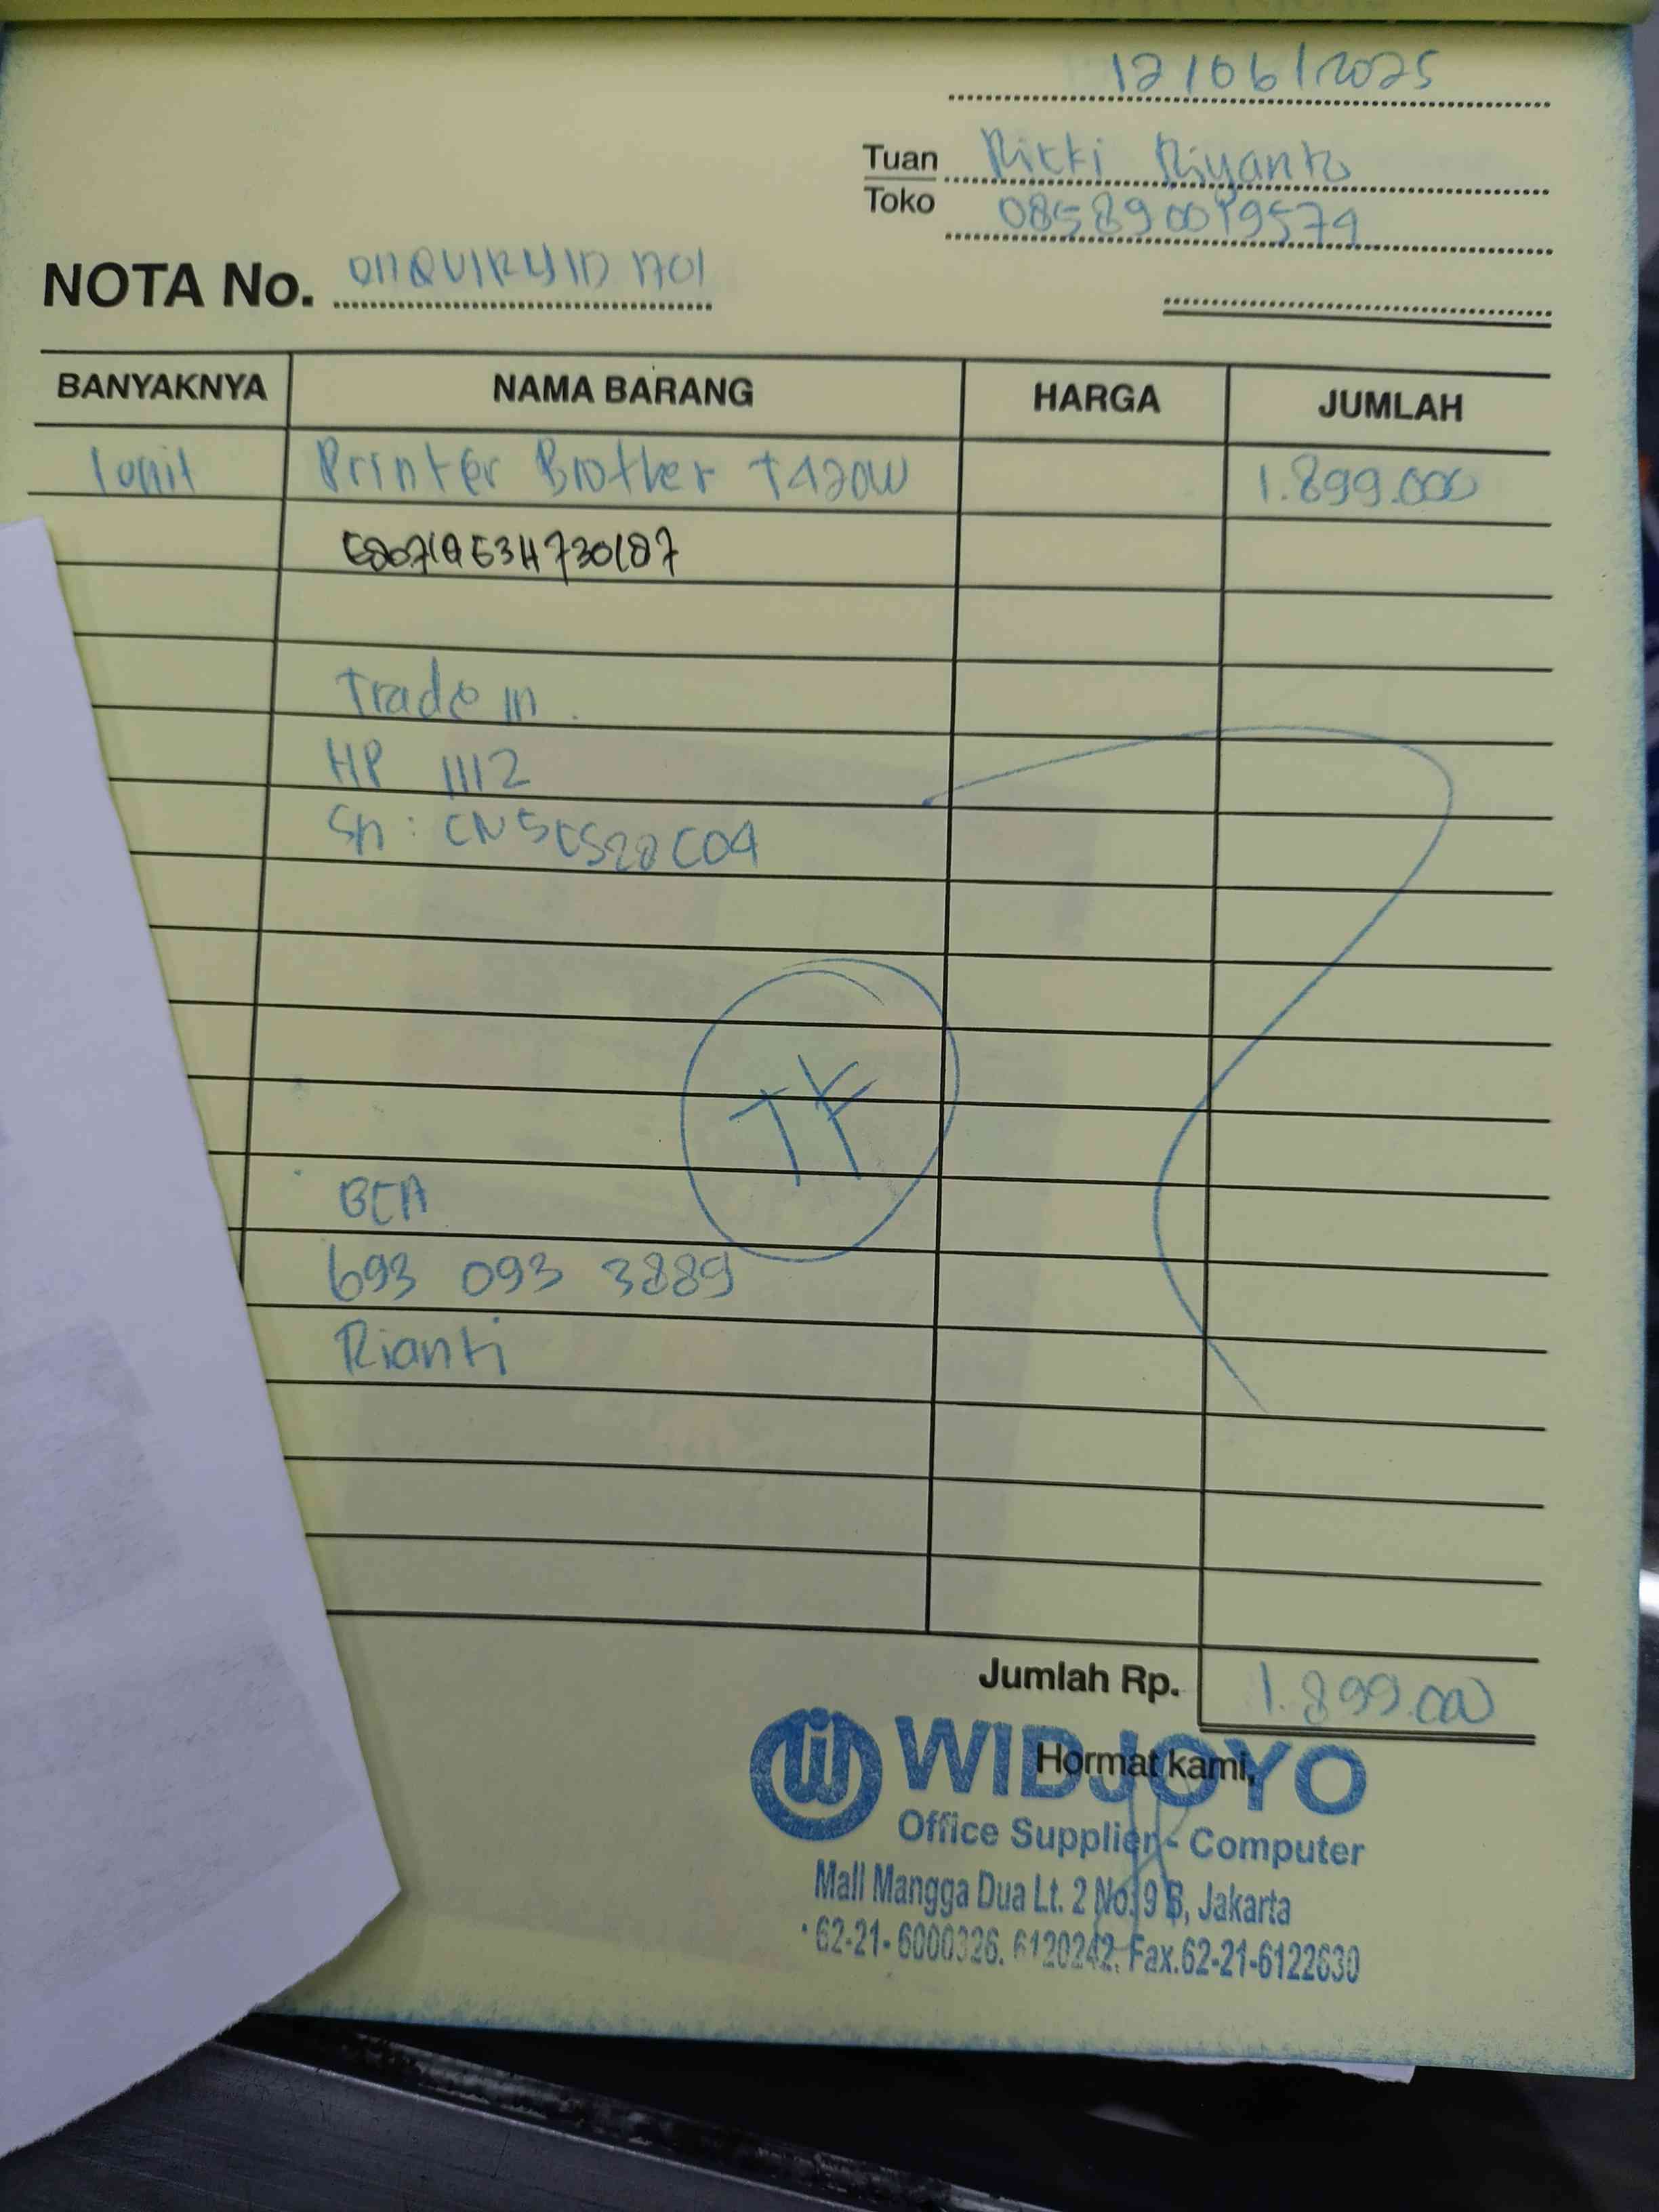 12/06/2025
Tuan Rikki Riyanto
Toko
NOTA No. 1701
BANYAKNYA NAMA BARANG HARGA JUMLAH
1 unit Printer Brother T420W 1.899.000
Trade in.
HP 1112
Sn:
TF
BCA
693 093 3889
Rianti
Jumlah Rp. 1.899.000
Hormat kami,
WIDJOYO
Office Supplier - Computer
Mall Mangga Dua Lt. 2 No. 9 B, Jakarta
62-21- 6000326. 6120242. Fax.62-21-6122630